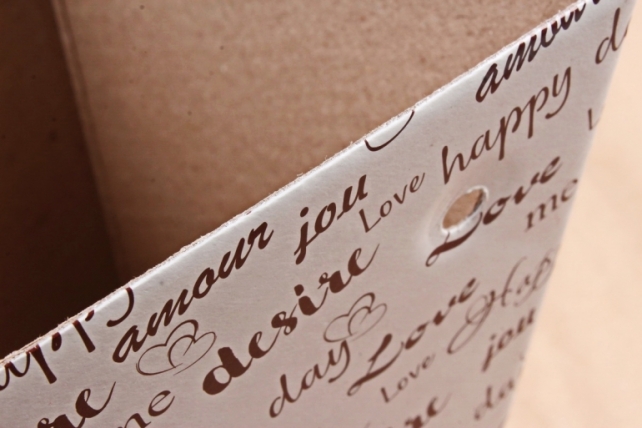 amour
happy
Love
amour jou
Love
me
desire
Love
day
Love
jou
me